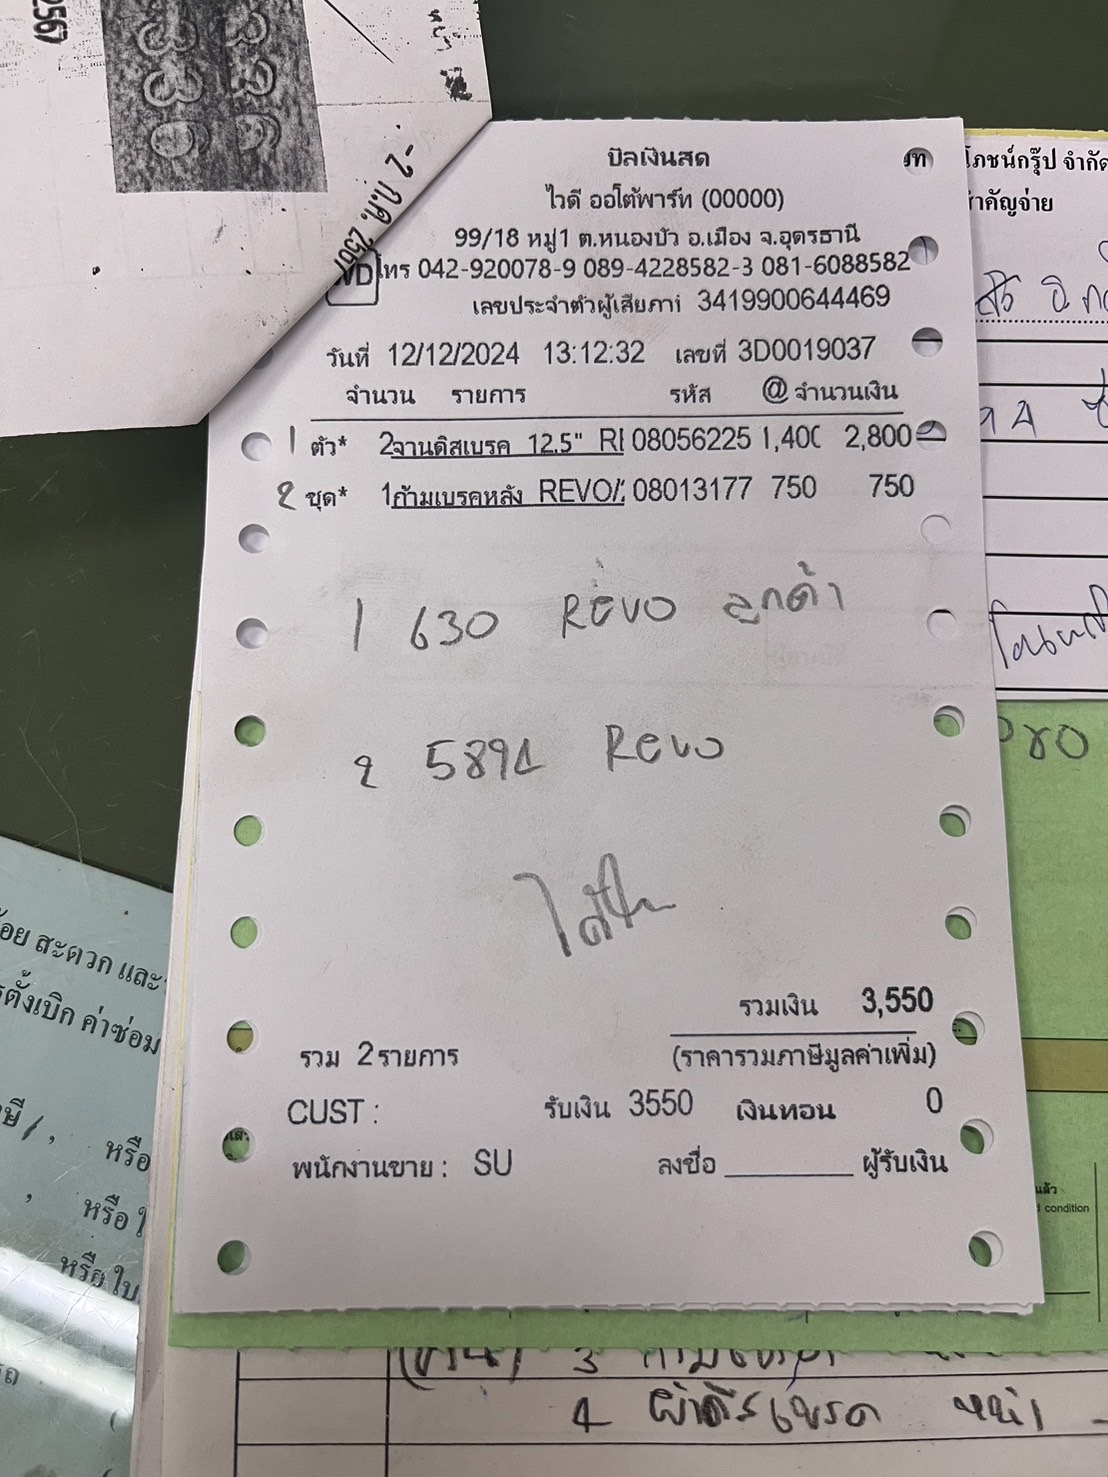 2567
-2 ก.ค. 2567
บิลเงินสด
ไวดี ออโต้พาร์ท (00000)
99/18 หมู่1 ต.หนองบัว อ.เมือง จ.อุดรธานี
โทร 042-920078-9 089-4228582-3 081-6088582
เลขประจำตัวผู้เสียภาษี 3419900644469
วันที่ 12/12/2024 13:12:32 เลขที่ 3D0019037
จำนวน รายการ รหัส @ จำนวนเงิน
1 ตัว* 2จานดิสเบรค 12.5" RE 08056225 1,400 2,800
2 ชุด* 1ก้ามเบรคหลัง REVO/ 08013177 750 750
1 630 REVO ลูกค้า
2 5894 Revo
รวมเงิน 3,550
รวม 2รายการ (ราคารวมภาษีมูลค่าเพิ่ม)
CUST : รับเงิน 3550 เงินทอน 0
พนักงานขาย : SU ลงชื่อ ผู้รับเงิน
โภชน์กรุ๊ป จำกัด
สำคัญจ่าย
สะดวก และ
ตั้งเบิก ค่าซ่อม
หรือ
หรือ ใ
หรือ ใบ
แล้ว
condition
3 ก้ามเบรค
4 ผ้าดิสเบรค หน้า -